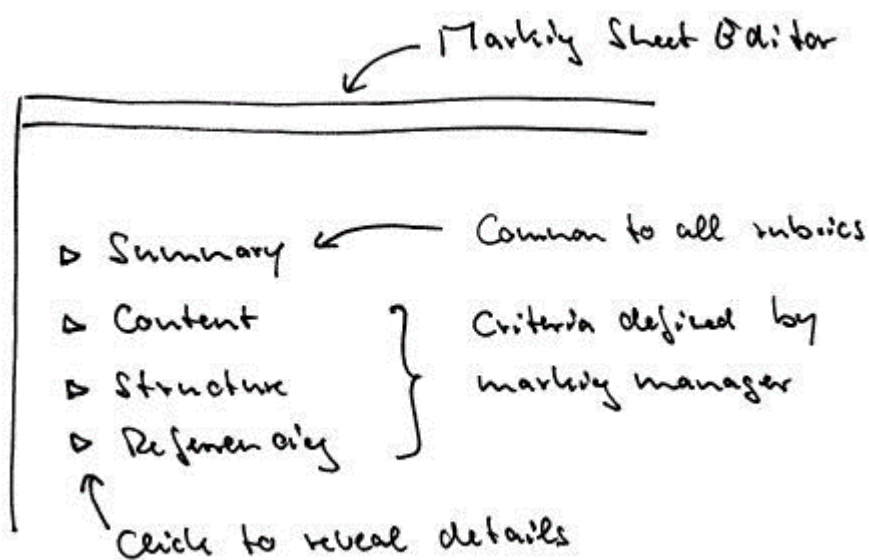 Marking Sheet Editor
▷ Summary
Common to all rubrics
▷ Content
▷ Structure
▷ Referencing
Criteria defined by
marking manager
Click to reveal details